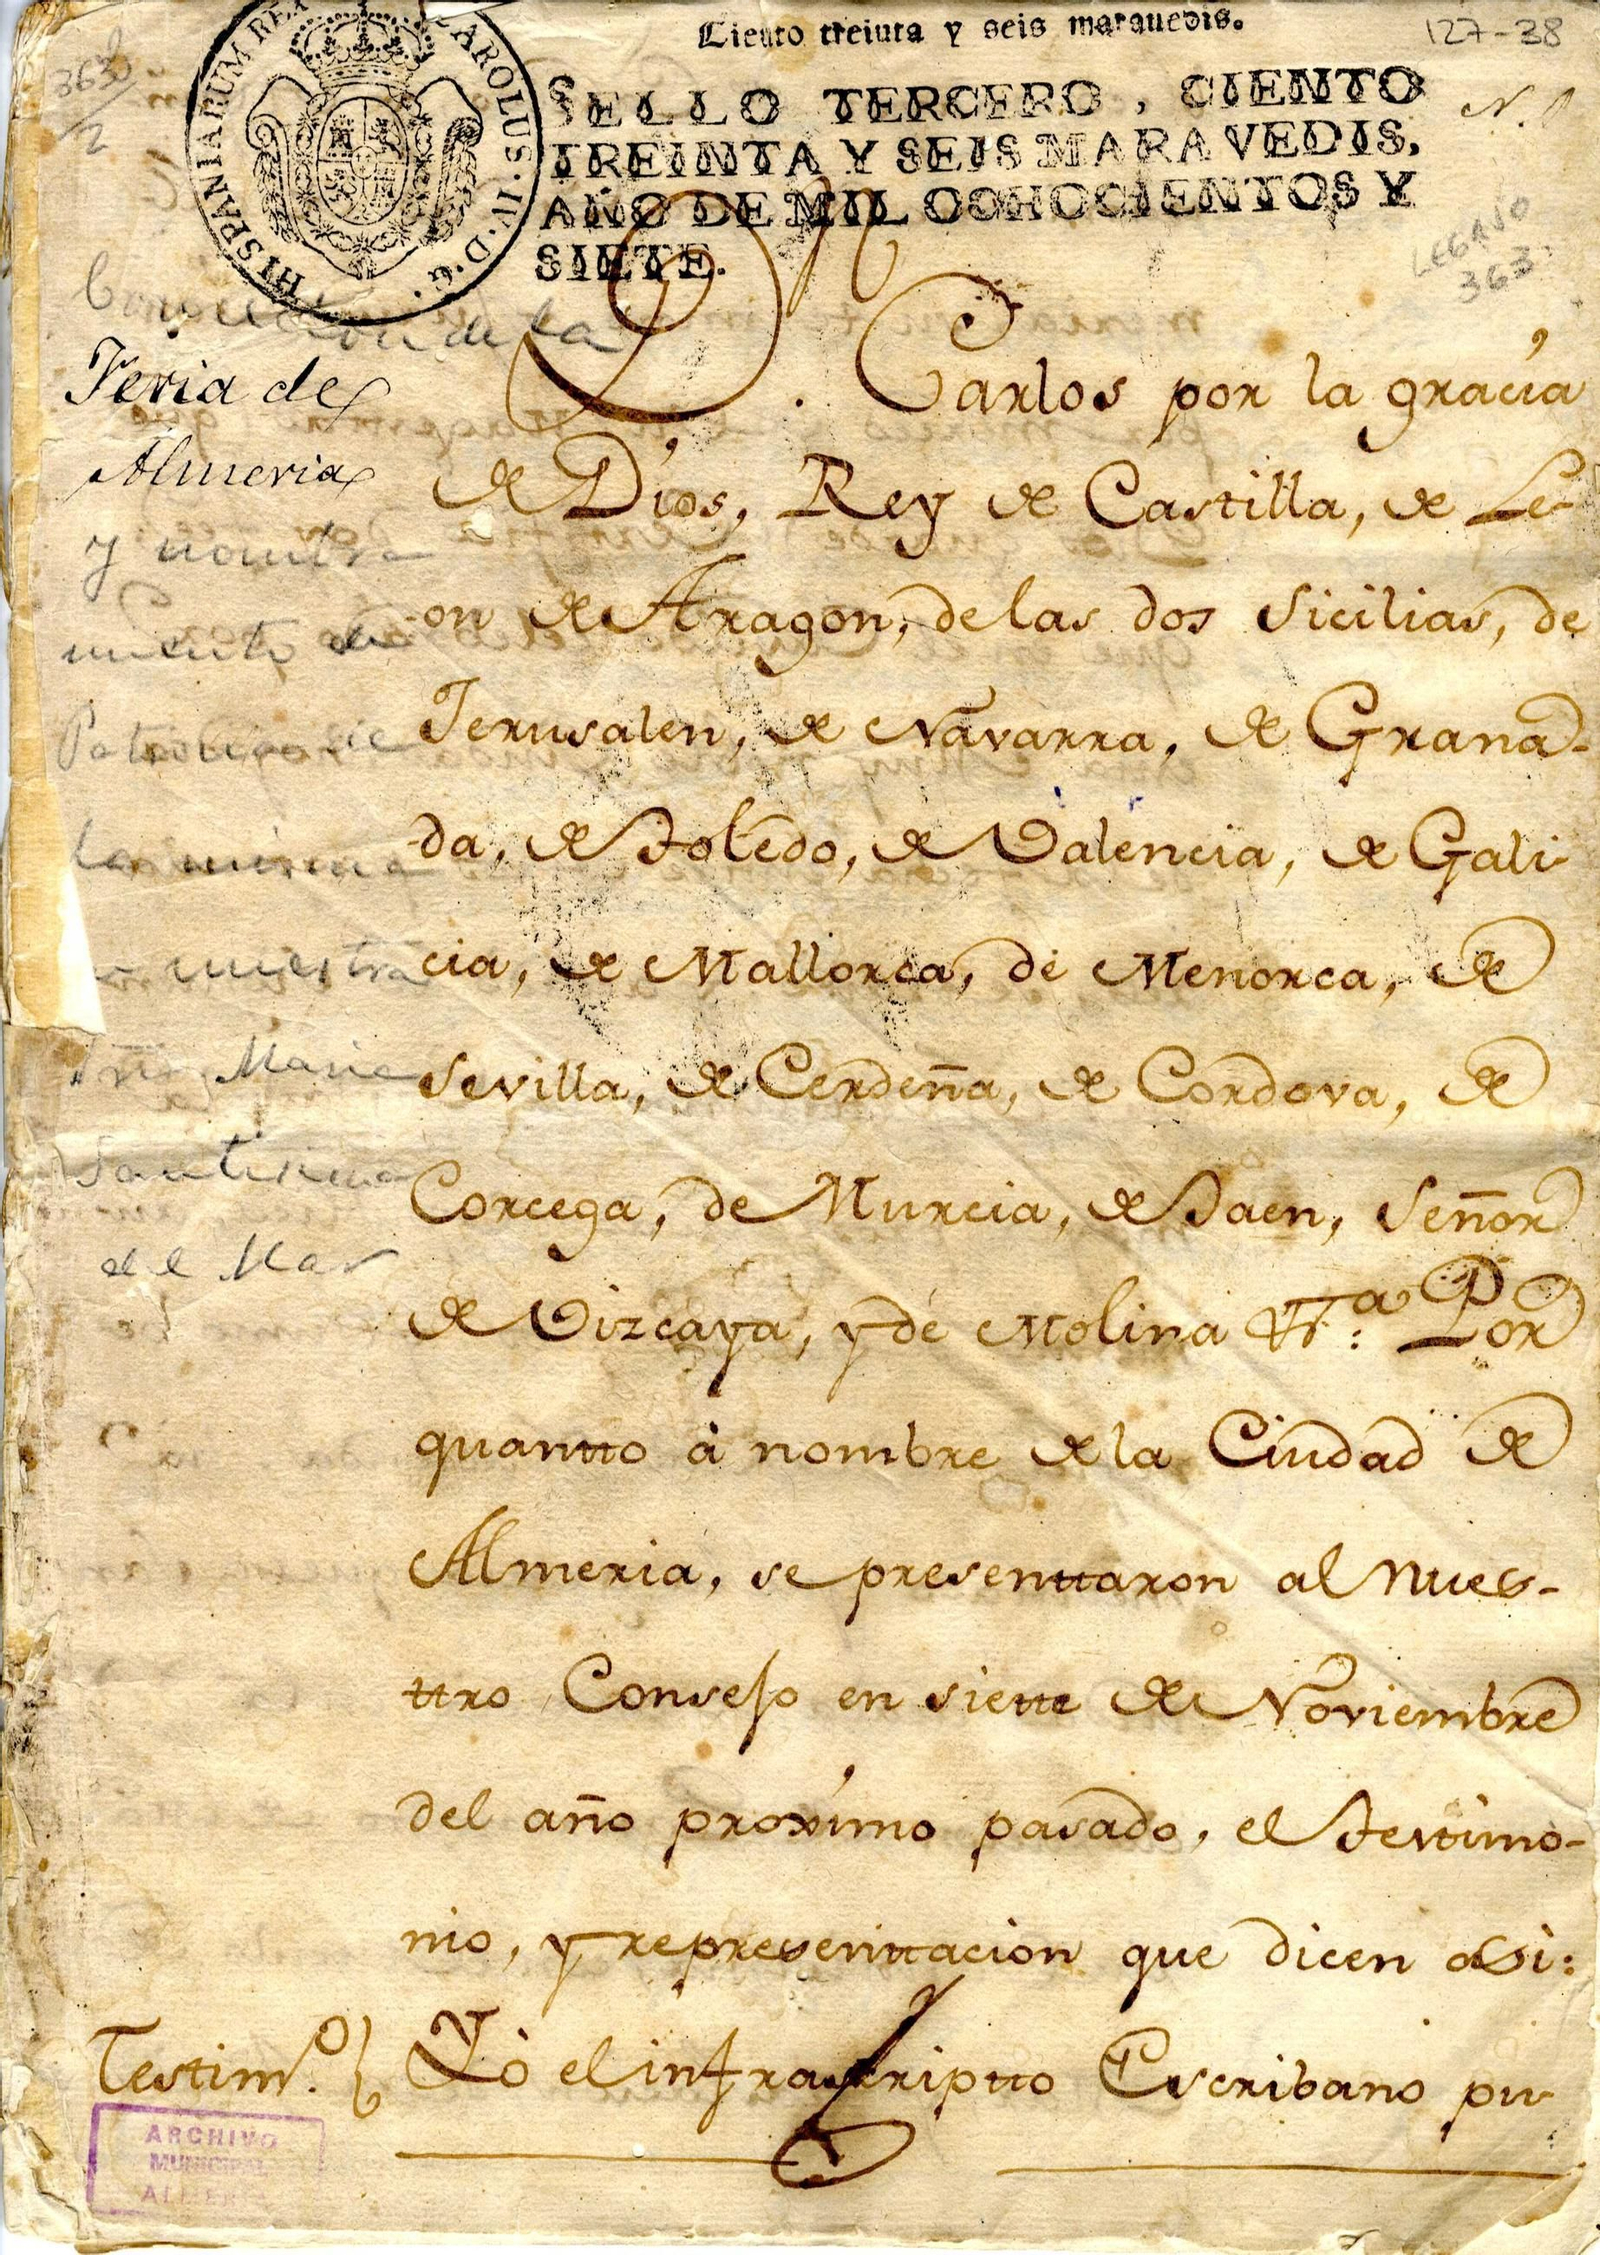 Ciento treinta y seis maravedis.
127-38
363
2
HISPANIARUM REX CAROLUS·IV·D·G·
SELLO TERCERO, CIENTO
TREINTA Y SEIS MARAVEDIS,
AÑO DE MIL OCHOCIENTOS Y
SIETE.
N.
LEGAJO
363
de la
Feria de
Almeria
y nombra
miento de
la misma
nuestra
Maria
Santisima
del Mar
Dn. Carlos por la gracia
de Dios, Rey de Castilla, de Le-
on de Aragon, de las dos Sicilias, de
Jerusalen, de Navarra, de Grana-
da, de Toledo, de Valencia, de Gali-
cia, de Mallorca, de Menorca, de
Sevilla, de Cerdeña, de Cordova, de
Corcega, de Murcia, de Jaen, Señor
de Vizcaya, y de Molina &.ª Por
quantto à nombre de la Ciudad de
Almeria, se presenttaron al nues-
ttro Consejo en siette de Noviembre
del año proximo pasado, el testimo-
nio, y representtacion que dicen asi:
Testim.º Yo el infrascriptto Escribano pu-
ARCHIVO
MUNICIPAL
ALMERIA